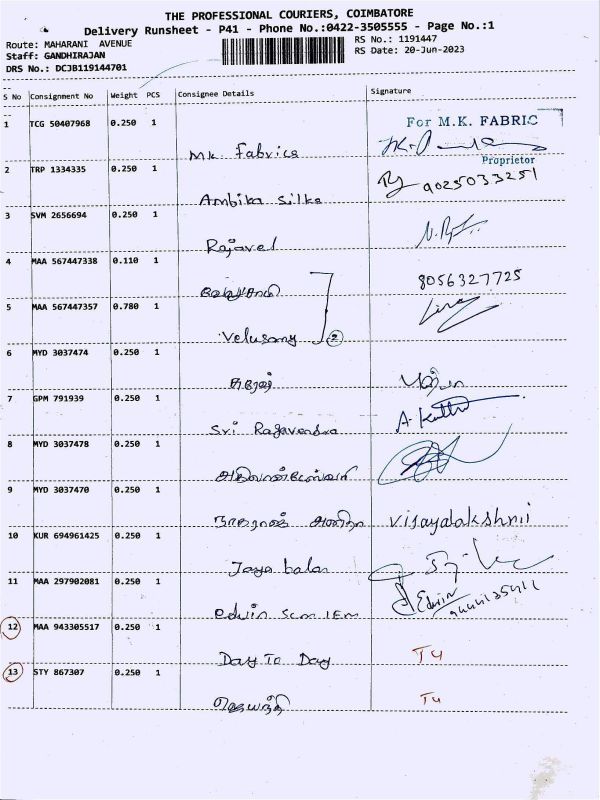 THE PROFESSIONAL COURIERS, COIMBATORE
Delivery Runsheet - P41 - Phone No.:0422-3505555 - Page No.:1
Route: MAHARANI AVENUE
RS No.: 1191447
Staff: GANDHIRAJAN
RS Date: 20-Jun-2023
DRS No.: DCJB119144701
S No Consignment No Weight PCS Consignee Details Signature
1 TCG 50407968 0.250 1
For M.K. FABRIC
MK Fabrics
Proprietor
2 TRP 1334335 0.250 1
9025033251
Ambika Silks
3 SVM 2656694 0.250 1
Rajavel
4 MAA 567447338 0.110 1
8056327725
5 MAA 567447357 0.780 1
Velusamy 2
6 MYD 3037474 0.250 1
7 GPM 791939 0.250 1
Sri Ragavendra
8 MYD 3037478 0.250 1
9 MYD 3037470 0.250 1
Vijayalakshmi
10 KUR 694961425 0.250 1
Jaya balan
11 MAA 297902081 0.250 1
Edwin
edwin
12 MAA 943305517 0.250 1
Day To Day
T4
13 STY 867307 0.250 1
ஜெயந்தி
T4